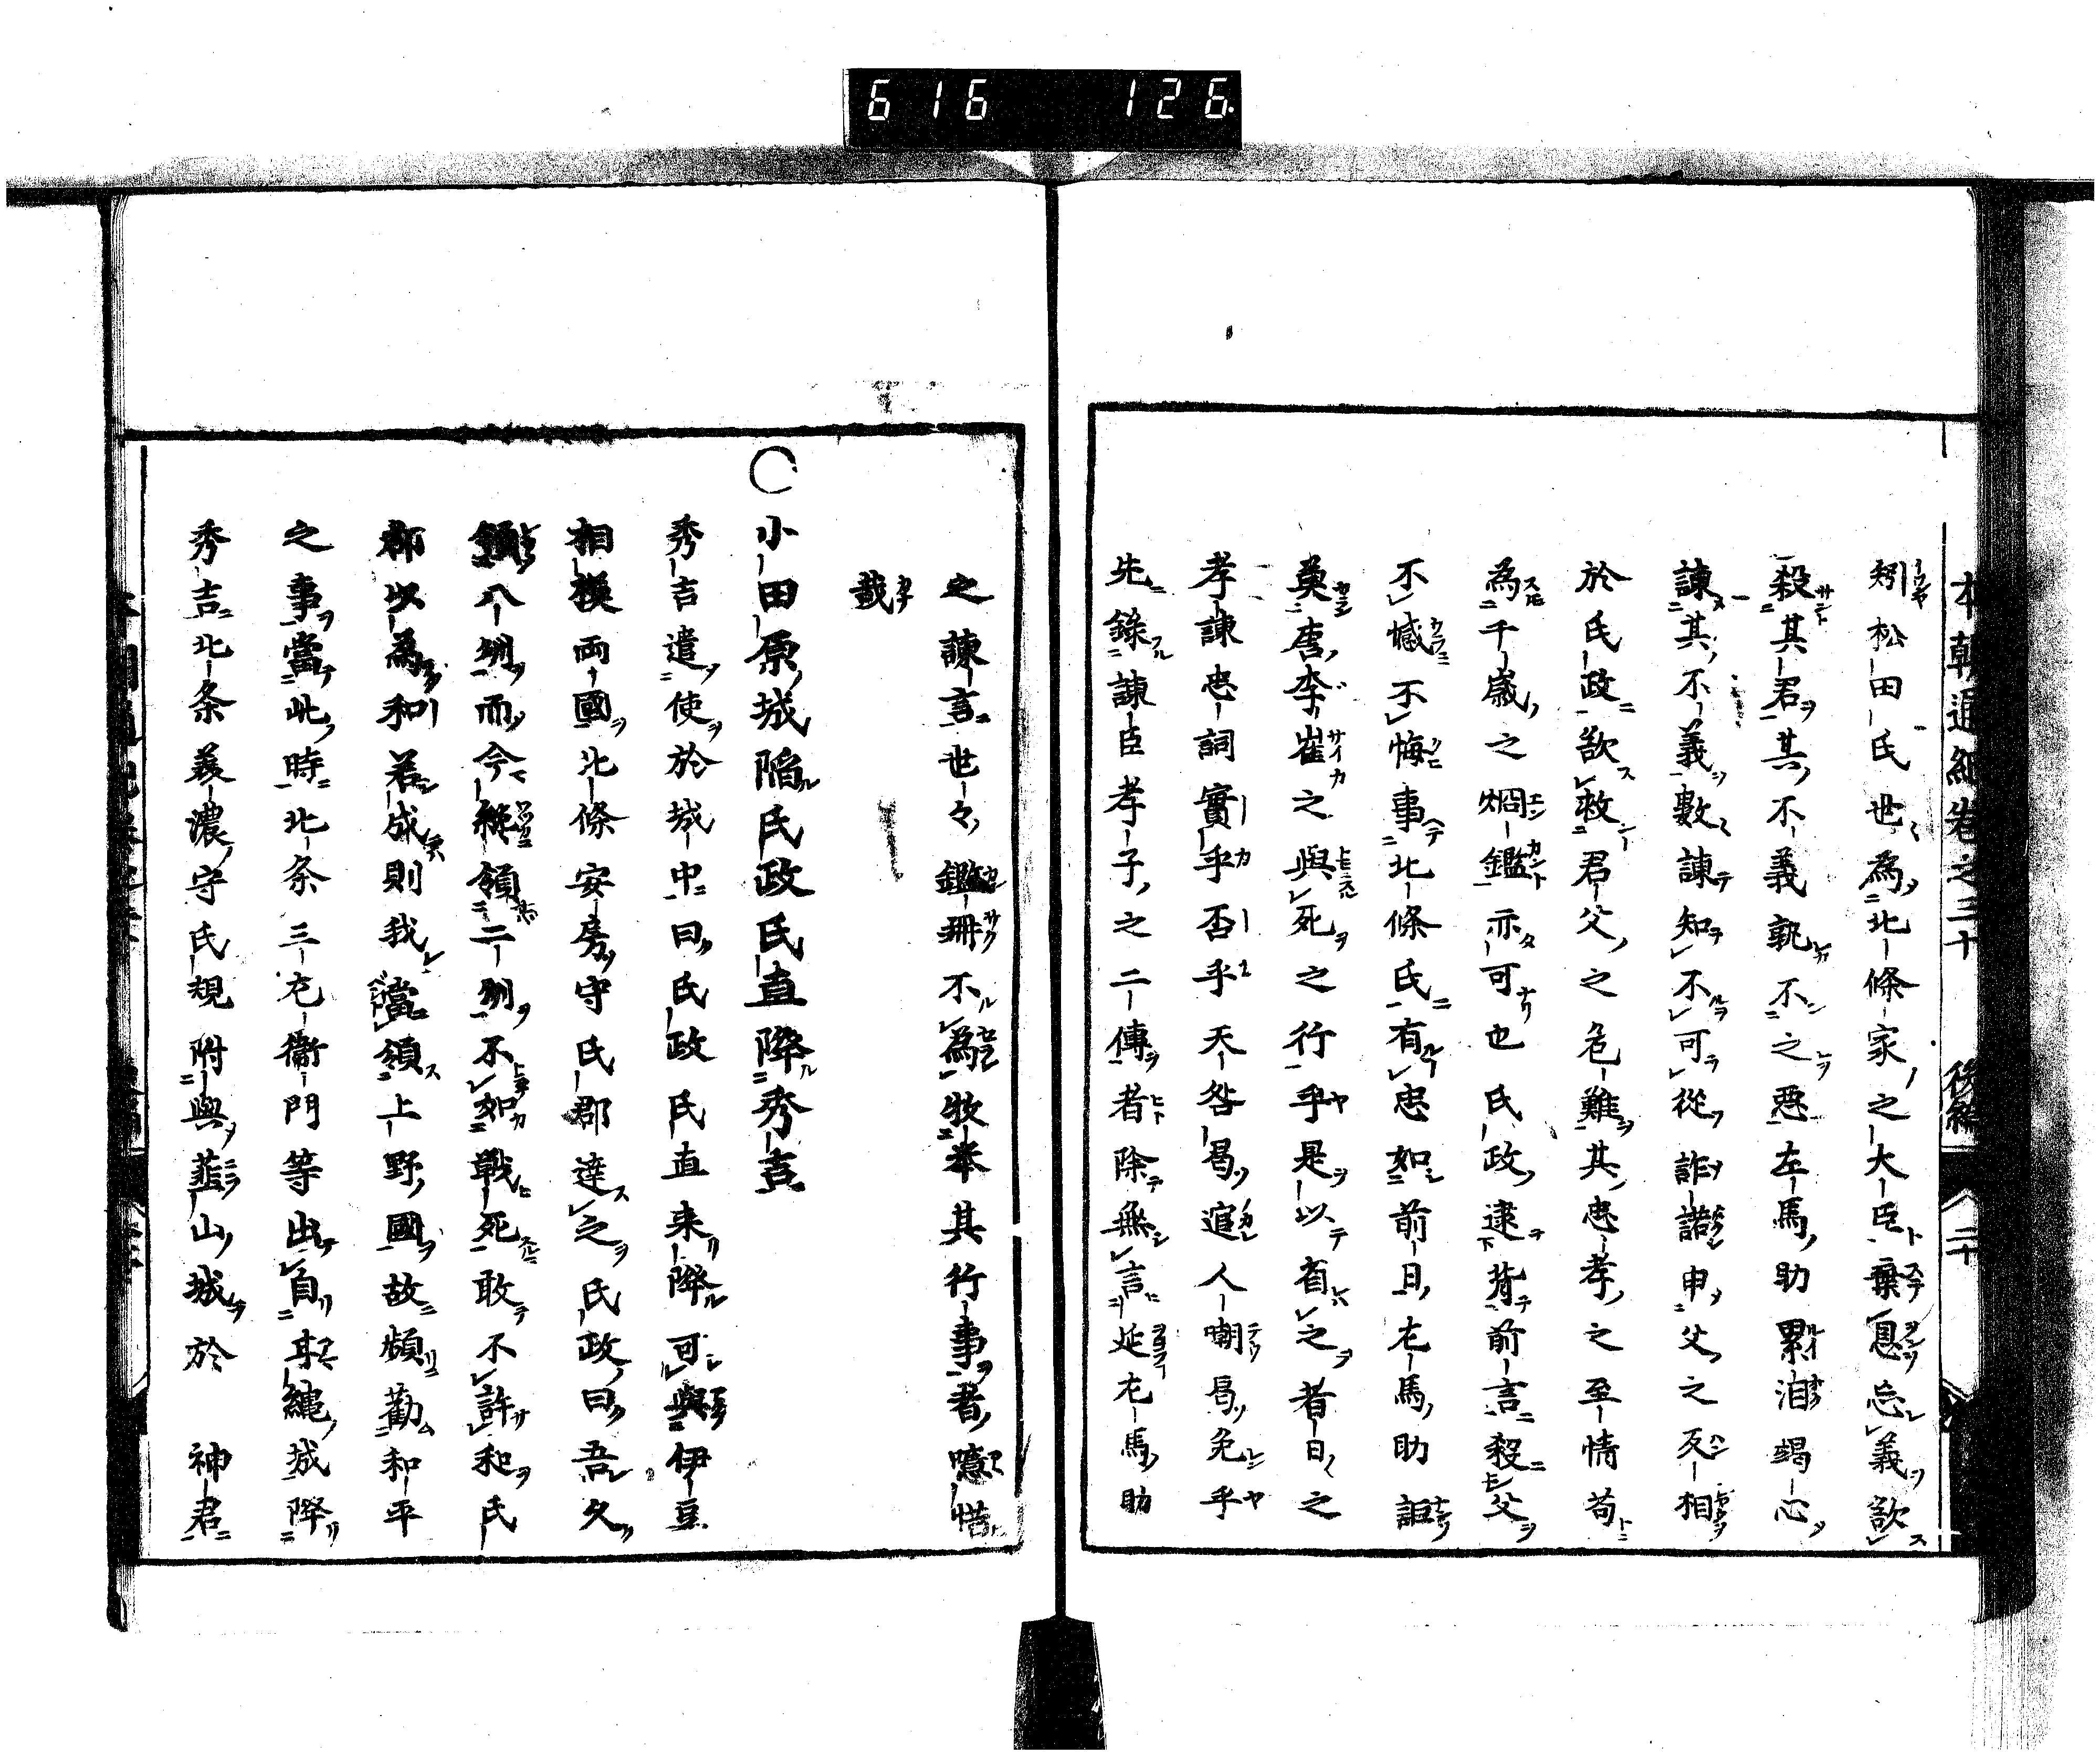 616 126
本朝通紀卷之三十 後編 二十
矧松田氏世爲北條家之大臣棄恩忘義欲
殺其君其不義孰不之惡左馬助累泪竭心
諫其不義數諫知不可從詐諾申父之反相
於氏政欲救君父之危難其忠孝之至情苟
爲千歲之炯鑑亦可也氏政逮背前言殺父
不憾不悔事北條氏有忠如前日左馬助詎
奠唐李崔之與死之行乎是以省之者曰之
孝諫忠詞實乎否乎天咎曷逭人嘲曷免乎
先錄諫臣孝子之二傳者除無言延左馬助
之諫言世々鑑册不爲牧举其行事者噫惜
哉
○小田原城陷氏政氏直降秀吉
秀吉遣使於城中曰氏政氏直来降可與伊豆
相模両國北條安房守氏郡達之氏政曰吾久
領八州而今總領二州不如戰死敢不許和氏
郡以爲和若成則我當領上野國故頻勸和平
之事當此時北条三左衞門等出自耳繩城降
秀吉北条義濃守氏規附與韮山城於 神君